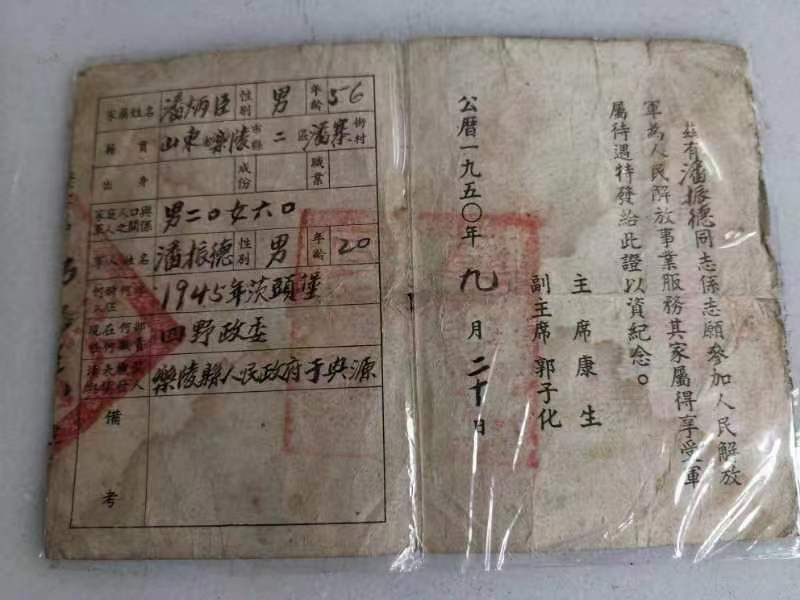 茲有潘振德同志係志願參加人民解放
軍為人民解放事業服務其家屬得享受軍
屬待遇特發給此證以資紀念。
主席康生
副主席郭子化
公曆一九五〇年九月二十日
家屬姓名 潘炳臣 性別 男 年齡 56
籍貫 山東省樂陵縣市二區潘寨街村
出身 成份 職業
家庭人口與軍人之關係 男二〇女六〇
軍人姓名 潘振德 性別 男 年齡 20
1945年茨頭堡
四野政委
樂陵縣人民政府于央源
備考